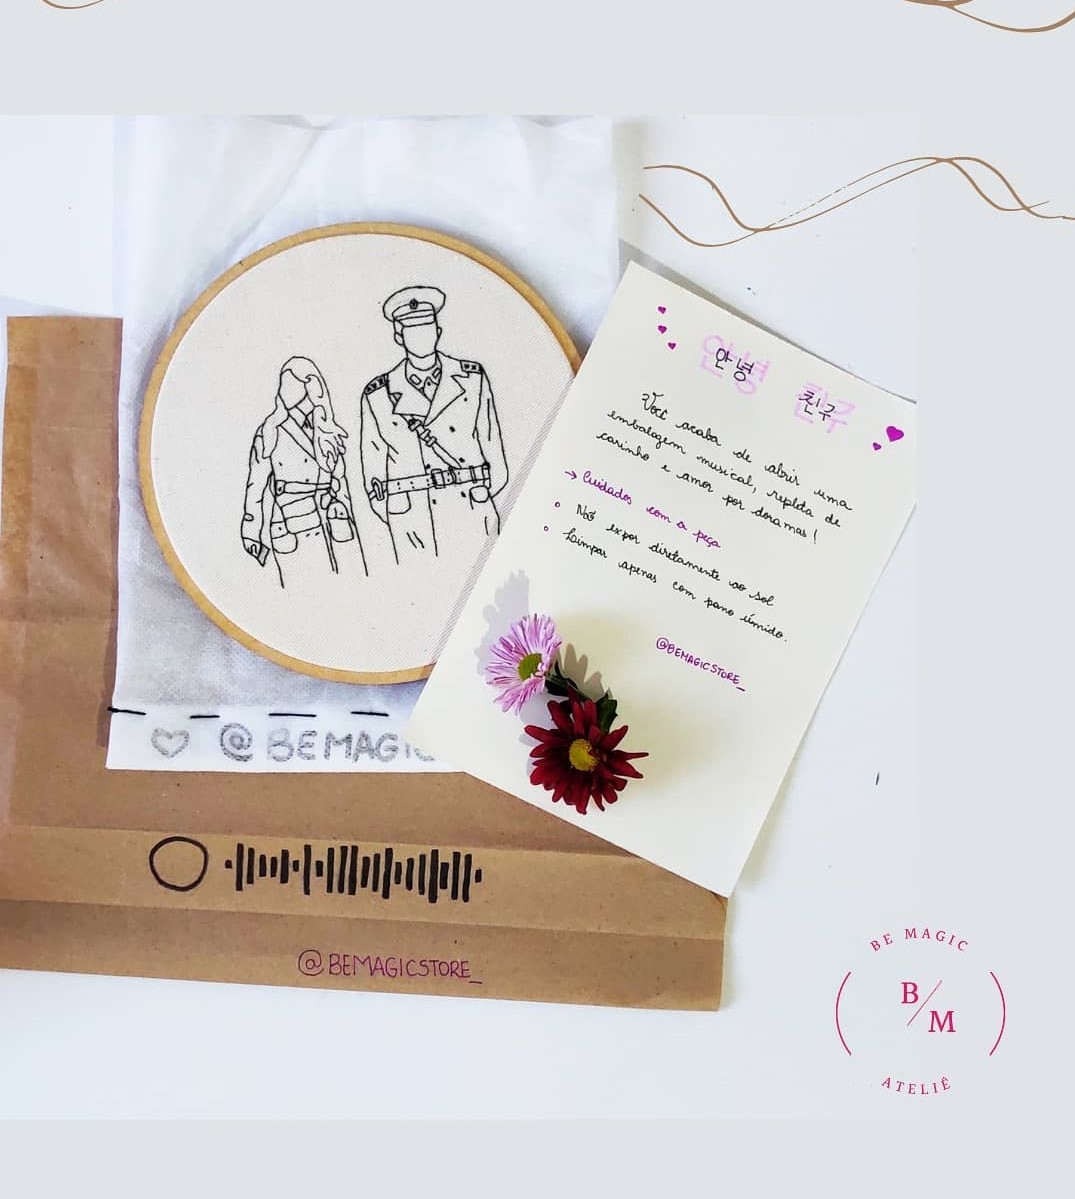 안녕 친구
Você acaba de abrir uma
embalagem musical, repleta de
carinho e amor por doramas!
→ Cuidados com a peça
Não expor diretamente ao sol
Limpar apenas com pano úmido.
@BEMAGICSTORE_
@BEMAGIC
@BEMAGICSTORE_
BE MAGIC
B/M
ATELIÊ